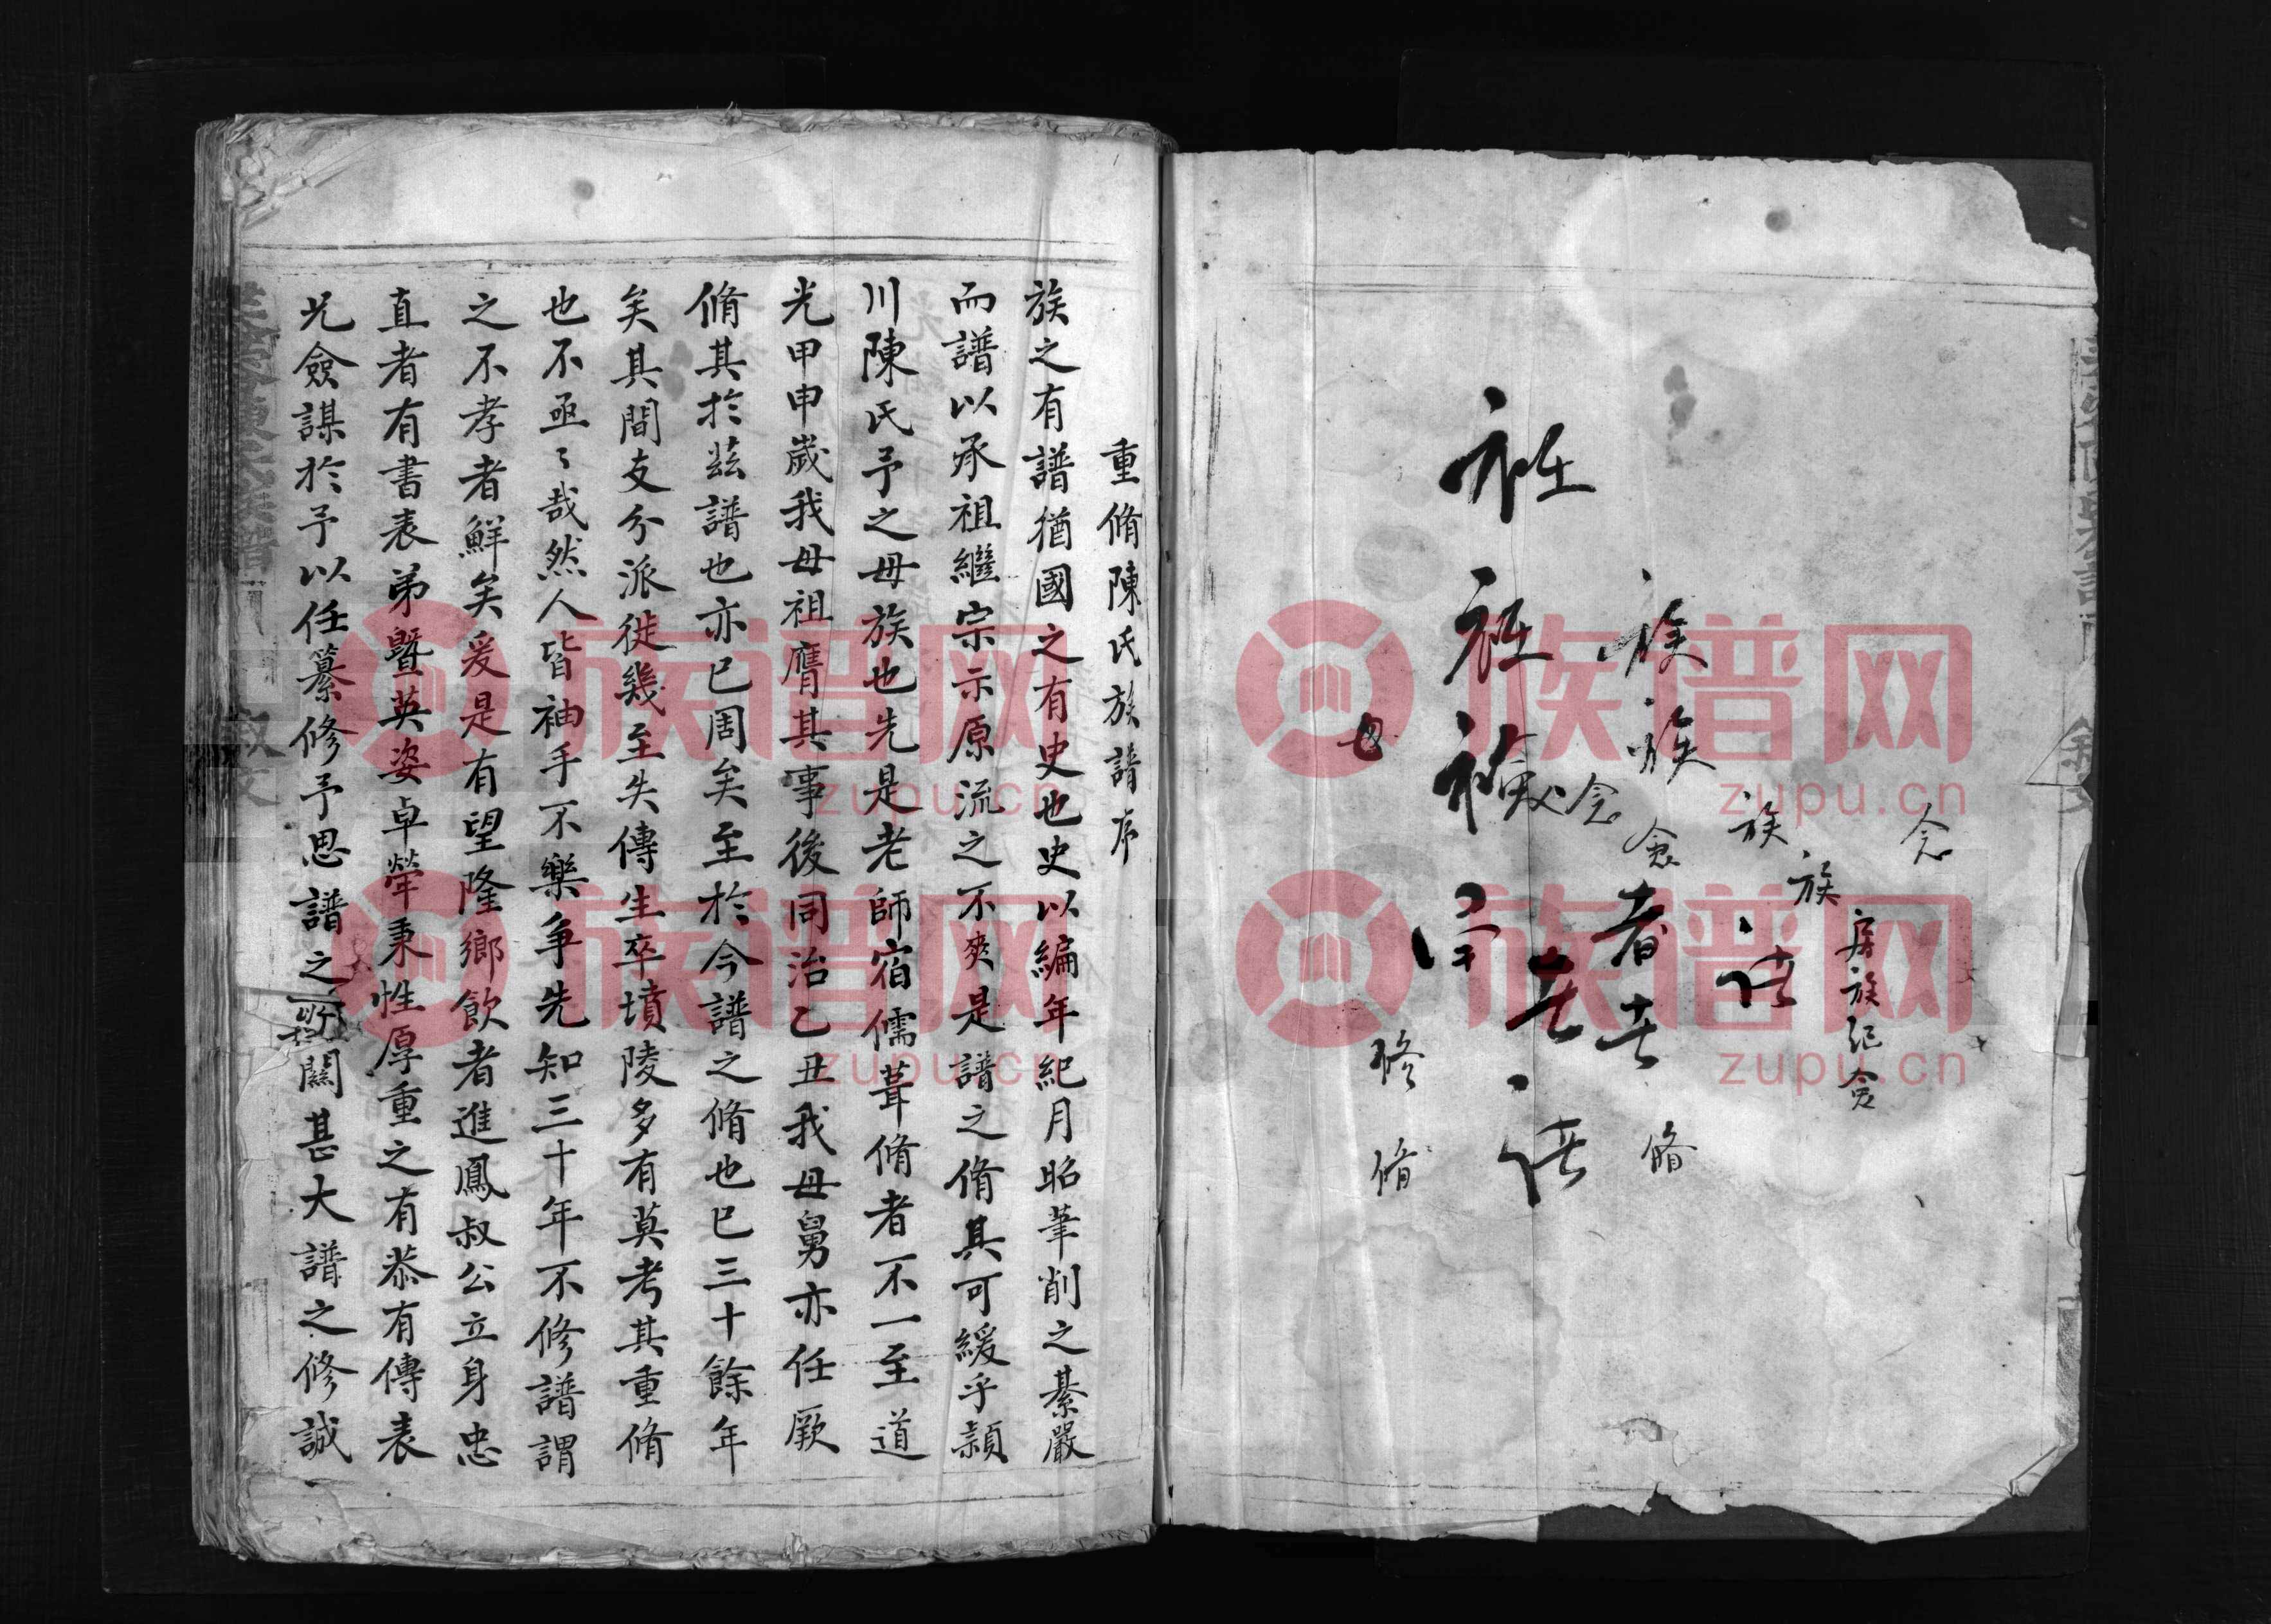 族
族
族
族
房族
念
念
者
修
修
脩
脩
重脩陳氏族譜序
族之有譜猶國之有史也史以編年紀月昭筆削之綦嚴
而譜以承祖繼宗示原流之不爽是譜之脩其可緩乎潁
川陳氏予之母族也先是老師宿儒葺脩者不一至道
光甲申歲我母祖膺其事後同治乙丑我母舅亦任厥
脩其於茲譜也亦已周矣至於今譜之脩也已三十餘年
矣其間支分派徙幾至失傳生卒墳陵多有莫考其重脩
也不亟〻哉然人皆袖手不樂爭先知三十年不修譜謂
之不孝者鮮矣爰是有望隆鄉飲者進鳳叔公立身忠
直者有書表弟曁英姿卓犖秉性厚重之有恭有傳表
兄僉謀於予以任纂修予思譜之所關甚大譜之修誠
族谱网
zupu.cn
族谱网
zupu.cn
族谱网
zupu.cn
族谱网
zupu.cn